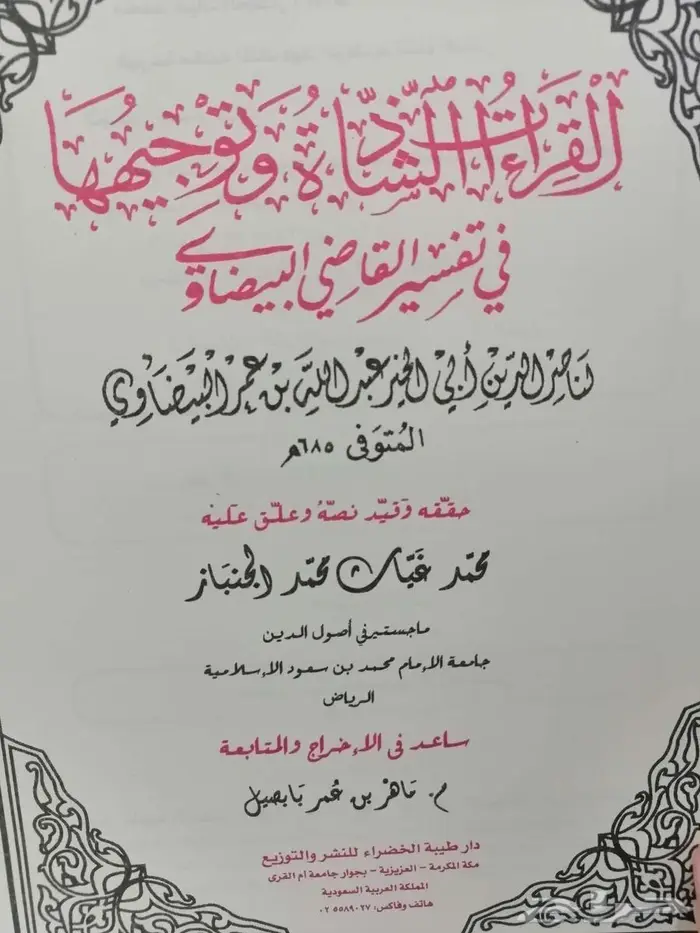 القِرَاءَاتُ الشَّاذَّةُ وَتَوْجِيهُهَا
في تفسير القاضي البيضاوي
لناصر الدين أبي الخير عبد الله بن عمر البيضاوي
المتوفى ٦٨٥هـ
حققه وقيد نصه وعلق عليه
محمد غياث محمد الجنباز
ماجستير في أصول الدين
جامعة الإمام محمد بن سعود الإسلامية
الرياض
ساعد في الإخراج والمتابعة
م. ماهر بن عمر بابصيل
دار طيبة الخضراء للنشر والتوزيع
مكة المكرمة - العزيزية - بجوار جامعة أم القرى
المملكة العربية السعودية
هاتف وفاكس: ٠٢٥٥٨٩٠٢٧